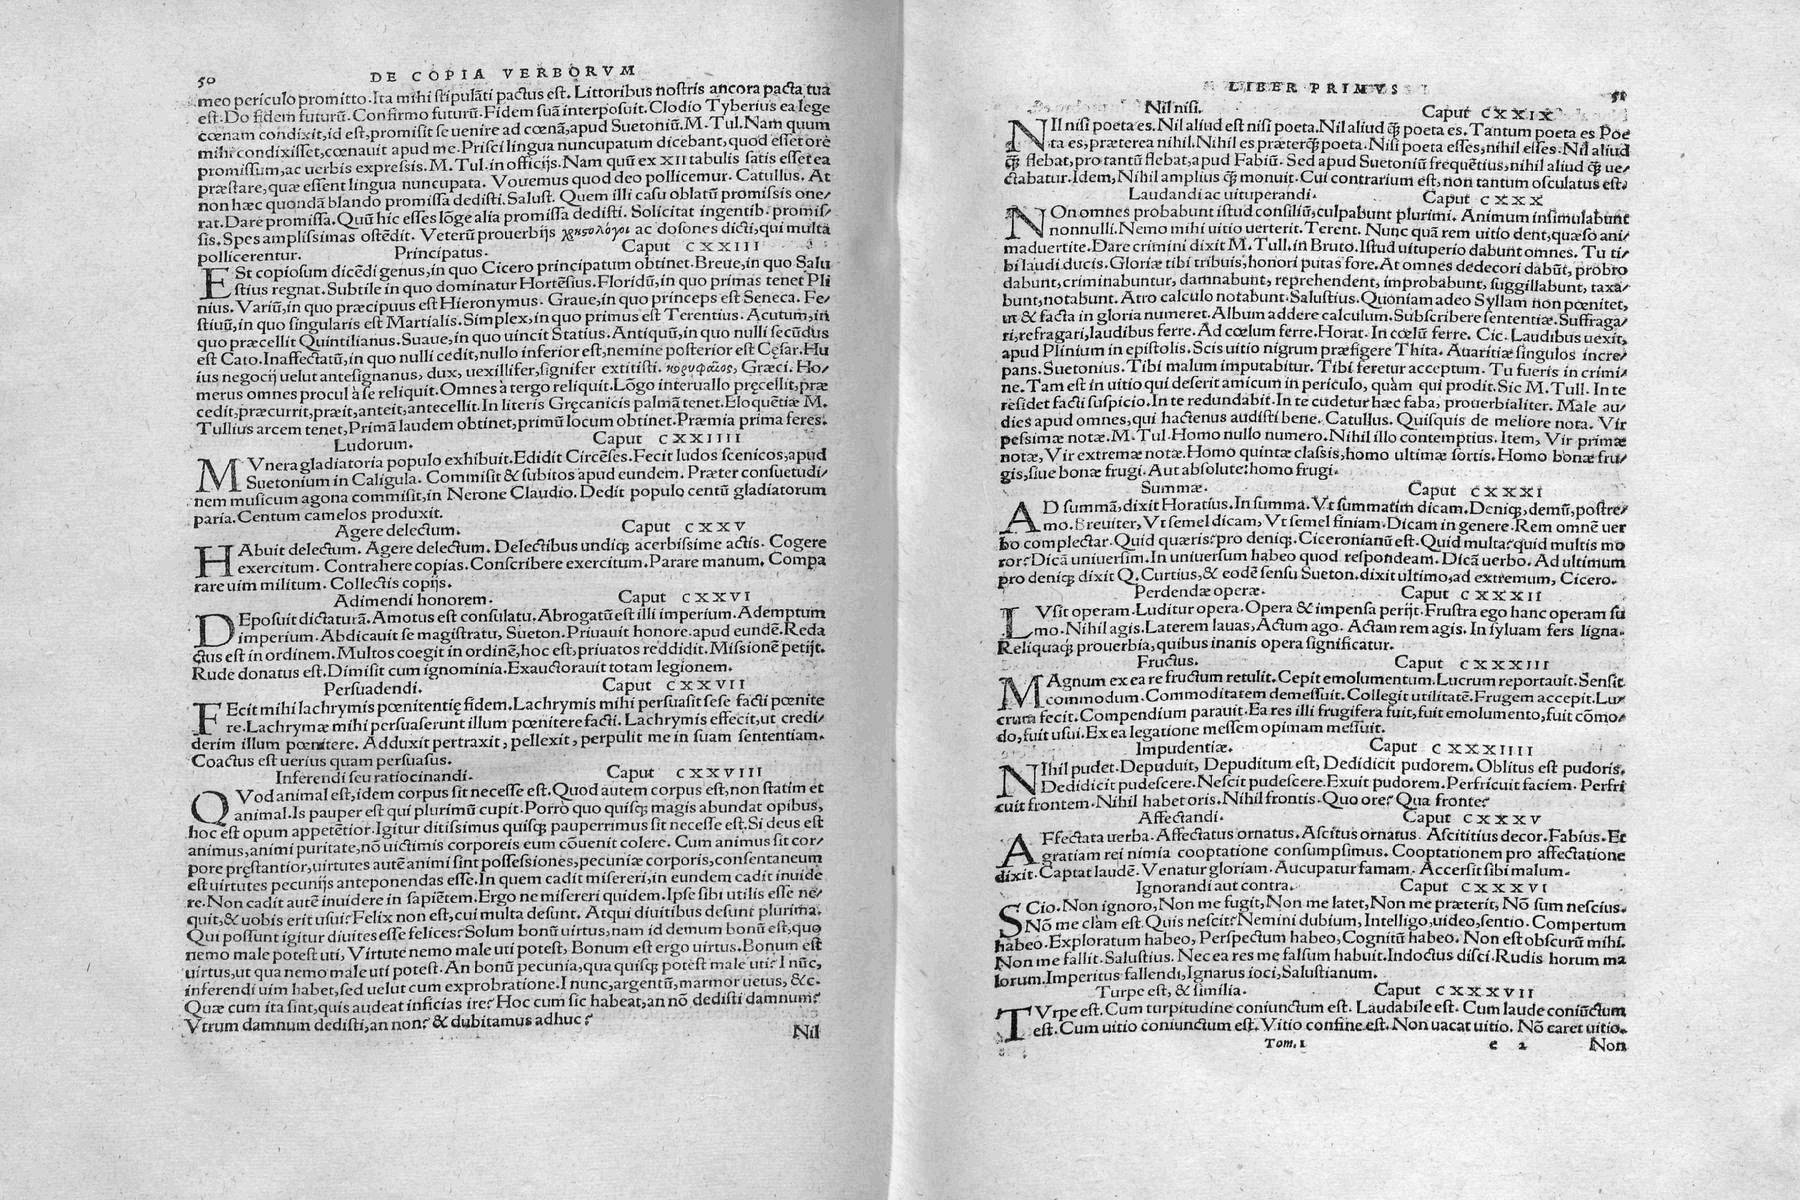 50 DE COPIA VERBORVM
meo periculo promitto. Ita mihi stipulāti pactus est. Littoribus nostris ancora pacta tua
est. Do fidem futurū. Confirmo futurū. Fidem suā interposuit. Clodio Tyberius ea lege
cœnam condixit, id est, promisit se uenire ad cœnā, apud Suetoniū. M. Tul. Nam quum
mihi condixisset, cœnauit apud me. Prisci lingua nuncupatum dicebant, quod esset ore
promissum, ac uerbis expressis. M. Tul. in officijs. Nam quū ex XII tabulis satis esset ea
præstare, quæ essent lingua nuncupata. Vouemus quod deo pollicemur. Catullus. At
non hæc quondā blando promissa dedisti. Salust. Quem illi casu oblatū promissis one/
rat. Dare promissa. Quū hic esses lōge alia promissa dedisti. Solicitat ingentib. promis/
sis. Spes amplissimas ostēdit. Veterū prouerbijs χρησολόγοι ac dosones dicti, qui multa
pollicerentur. Principatus. Caput CXXIII
ESt copiosum dicēdi genus, in quo Cicero principatum obtinet. Breue, in quo Salu
stius regnat. Subtile in quo dominatur Hortēsius. Floridū, in quo primas tenet Pli
nius. Variū, in quo præcipuus est Hieronymus. Graue, in quo princeps est Seneca. Fe/
stiuū, in quo singularis est Martialis. Simplex, in quo primus est Terentius. Acutum, in
quo præcellit Quintilianus. Suaue, in quo uincit Statius. Antiquū, in quo nulli secūdus
est Cato. Inaffectatū, in quo nulli cedit, nullo inferior est, nemine posterior est Cęsar. Hu
ius negocij uelut antesignanus, dux, uexillifer, signifer extitisti. κορυφαῖος, Græci. Ho/
merus omnes procul à se reliquit. Omnes à tergo reliquit. Lōgo interuallo pręcellit, præ
cedit, præcurrit, præit, anteit, antecellit. In literis Gręcanicis palmā tenet. Eloquētiæ M.
Tullius arcem tenet, Primā laudem obtinet, primū locum obtinet. Præmia prima feres.
Ludorum. Caput CXXIIII
MVnera gladiatoria populo exhibuit. Edidit Circēses. Fecit ludos scenicos, apud
Suetonium in Caligula. Commisit & subitos apud eundem. Præter consuetudi/
nem musicum agona commisit, in Nerone Claudio. Dedit populo centū gladiatorum
paria. Centum camelos produxit.
Agere delectum. Caput CXXV
HAbuit delectum. Agere delectum. Delectibus undiq; acerbissime actis. Cogere
exercitum. Contrahere copias. Conscribere exercitum. Parare manum. Compa
rare uim militum. Collectis copijs.
Adimendi honorem. Caput CXXVI
DEposuit dictaturā. Amotus est consulatu. Abrogatū est illi imperium. Ademptum
imperium. Abdicauit se magistratu, Sueton. Priuauit honore. apud eundē. Reda
ctus est in ordinem. Multos coegit in ordinē, hoc est, priuatos reddidit. Missionē petijt.
Rude donatus est. Dimisit cum ignominia. Exauctorauit totam legionem.
Persuadendi. Caput CXXVII
FEcit mihi lachrymis pœnitentię fidem. Lachrymis mihi persuasit sese facti pœnite
re. Lachrymæ mihi persuaserunt illum pœnitere facti. Lachrymis effecit, ut credi/
derim illum pœnitere. Adduxit pertraxit, pellexit, perpulit me in suam sententiam.
Coactus est uerius quam persuasus.
Inferendi seu ratiocinandi. Caput CXXVIII
QVod animal est, idem corpus sit necesse est. Quod autem corpus est, non statim et
animal. Is pauper est qui plurimū cupit. Porrò quo quisq; magis abundat opibus,
hoc est opum appetētior. Igitur ditissimus quisq; pauperrimus sit necesse est. Si deus est
animus, animi puritate, nō uictimis corporeis eum cōuenit colere. Cum animus sit cor/
pore pręstantior, uirtutes autē animi sint possessiones, pecuniæ corporis, consentaneum
est uirtutes pecunijs anteponendas esse. In quem cadit misereri, in eundem cadit inuide
re. Non cadit autē inuidere in sapiētem. Ergo ne misereri quidem. Ipse sibi utilis esse ne/
quit, & uobis erit usui? Felix non est, cui multa desunt. Atqui diuitibus desunt plurima.
Qui possunt igitur diuites esse felices? Solum bonū uirtus, nam id demum bonū est, quo
nemo male potest uti, Virtute nemo male uti potest, Bonum est ergo uirtus. Bonum est
uirtus, ut qua nemo male uti potest. An bonū pecunia, qua quisq; potest male uti? I nūc,
inferendi uim habet, sed uelut cum exprobratione. I nunc, argentū, marmor uetus, &c.
Quæ cum ita sint, quis audeat inficias ire? Hoc cum sic habeat, an nō dedisti damnum?
Vtrum damnum dedisti, an non? & dubitamus adhuc?
Nil
LIBER PRIMVS 51
Nil nisi. Caput CXXIX
NIl nisi poeta es. Nil aliud est nisi poeta. Nil aliud q̃ poeta es. Tantum poeta es Poe
ta es, præterea nihil. Nihil es præterq̃ poeta. Nisi poeta esses, nihil esses. Nil aliud
q̃ flebat, pro tantū flebat, apud Fabiū. Sed apud Suetoniū frequētius, nihil aliud q̃ ue/
ctabatur. Idem, Nihil amplius q̃ monuit. Cui contrarium est, non tantum osculatus est.
Laudandi ac uituperandi. Caput CXXX
NOn omnes probabunt istud consiliū, culpabunt plurimi. Animum insimulabunt
nonnulli. Nemo mihi uitio uerterit. Terent. Nunc quā rem uitio dent, quæso ani/
maduertite. Dare crimini dixit M. Tull. in Bruto. Istud uituperio dabunt omnes. Tu ti/
bi laudi ducis. Gloriæ tibi tribuis, honori putas fore. At omnes dedecori dabūt, probro
dabunt, criminabuntur, damnabunt, reprehendent, improbabunt, suggillabunt, taxa/
bunt, notabunt. Atro calculo notabunt. Salustius. Quoniam adeo Syllam non pœnitet,
ut & facta in gloria numeret. Album addere calculum. Subscribere sententiæ. Suffraga/
ri, refragari, laudibus ferre. Ad cœlum ferre. Horat. In cœlū ferre. Cic. Laudibus uexit,
apud Plinium in epistolis. Scis uitio nigrum præfigere Thita. Auaritiæ singulos incre/
pans. Suetonius. Tibi malum imputabitur. Tibi feretur acceptum. Tu fueris in crimi/
ne. Tam est in uitio qui deserit amicum in periculo, quàm qui prodit. Sic M. Tull. In te
residet facti suspicio. In te redundabit. In te cudetur hæc faba, prouerbialiter. Male au/
dies apud omnes, qui hactenus audisti bene. Catullus. Quisquis de meliore nota. Vir
pessimæ notæ. M. Tul. Homo nullo numero. Nihil illo contemptius. Item, Vir primæ
notæ, Vir extremæ notæ. Homo quintæ classis, homo ultimæ sortis. Homo bonæ fru/
gis, siue bonæ frugi. Aut absolute: homo frugi.
Summæ. Caput CXXXI
AD summā, dixit Horatius. In summa. Vt summatim dicam. Deniq;, demū, postre/
mo. Breuiter, Vt semel dicam, Vt semel finiam. Dicam in genere. Rem omnē uer
bo complectar. Quid quæris? pro deniq;. Ciceronianū est. Quid multa? quid multis mo
ror? Dicā uniuersim. In uniuersum habeo quod respondeam. Dicā uerbo. Ad ultimum
pro deniq; dixit Q. Curtius, & eodē sensu Sueton. dixit ultimo, ad extremum, Cicero.
Perdendæ operæ. Caput CXXXII
LVsit operam. Luditur opera. Opera & impensa perijt. Frustra ego hanc operam su
mo. Nihil agis. Laterem lauas, Actum ago. Actam rem agis. In syluam fers ligna.
Reliquaq; prouerbia, quibus inanis opera significatur.
Fructus. Caput CXXXIII
MAgnum ex ea re fructum retulit. Cepit emolumentum. Lucrum reportauit. Sensit
commodum. Commoditatem demessuit. Collegit utilitatē. Frugem accepit. Lu/
crum fecit. Compendium parauit. Ea res illi frugifera fuit, fuit emolumento, fuit cōmo/
do, fuit usui. Ex ea legatione messem opimam messuit.
Impudentiæ. Caput CXXXIIII
NIhil pudet. Depuduit, Depuditum est, Dedidicit pudorem. Oblitus est pudoris.
Dedidicit pudescere. Nescit pudescere. Exuit pudorem. Perfricuit faciem. Perfri
cuit frontem. Nihil habet oris. Nihil frontis. Quo ore? Qua fronte?
Affectandi. Caput CXXXV
AFfectata uerba. Affectatus ornatus. Ascitus ornatus. Ascititius decor. Fabius. Et
gratiam rei nimia cooptatione consumpsimus. Cooptationem pro affectatione
dixit. Captat laudē. Venatur gloriam. Aucupatur famam. Accersit sibi malum.
Ignorandi aut contra. Caput CXXXVI
SCio. Non ignoro, Non me fugit, Non me latet, Non me præterit, Nō sum nescius.
Nō me clam est. Quis nescit? Nemini dubium, Intelligo, uideo, sentio. Compertum
habeo. Exploratum habeo, Perspectum habeo, Cognitū habeo. Non est obscurū mihi.
Non me fallit. Salustius. Nec ea res me falsum habuit. Indoctus disci. Rudis horum ma
lorum. Imperitus fallendi, Ignarus ioci, Salustianum.
Turpe est, & similia. Caput CXXXVII
TVrpe est. Cum turpitudine coniunctum est. Laudabile est. Cum laude coniūctum
est. Cum uitio coniunctum est. Vitio confine est. Non uacat uitio. Nō caret uitio.
Tom. 1 e 2 Non